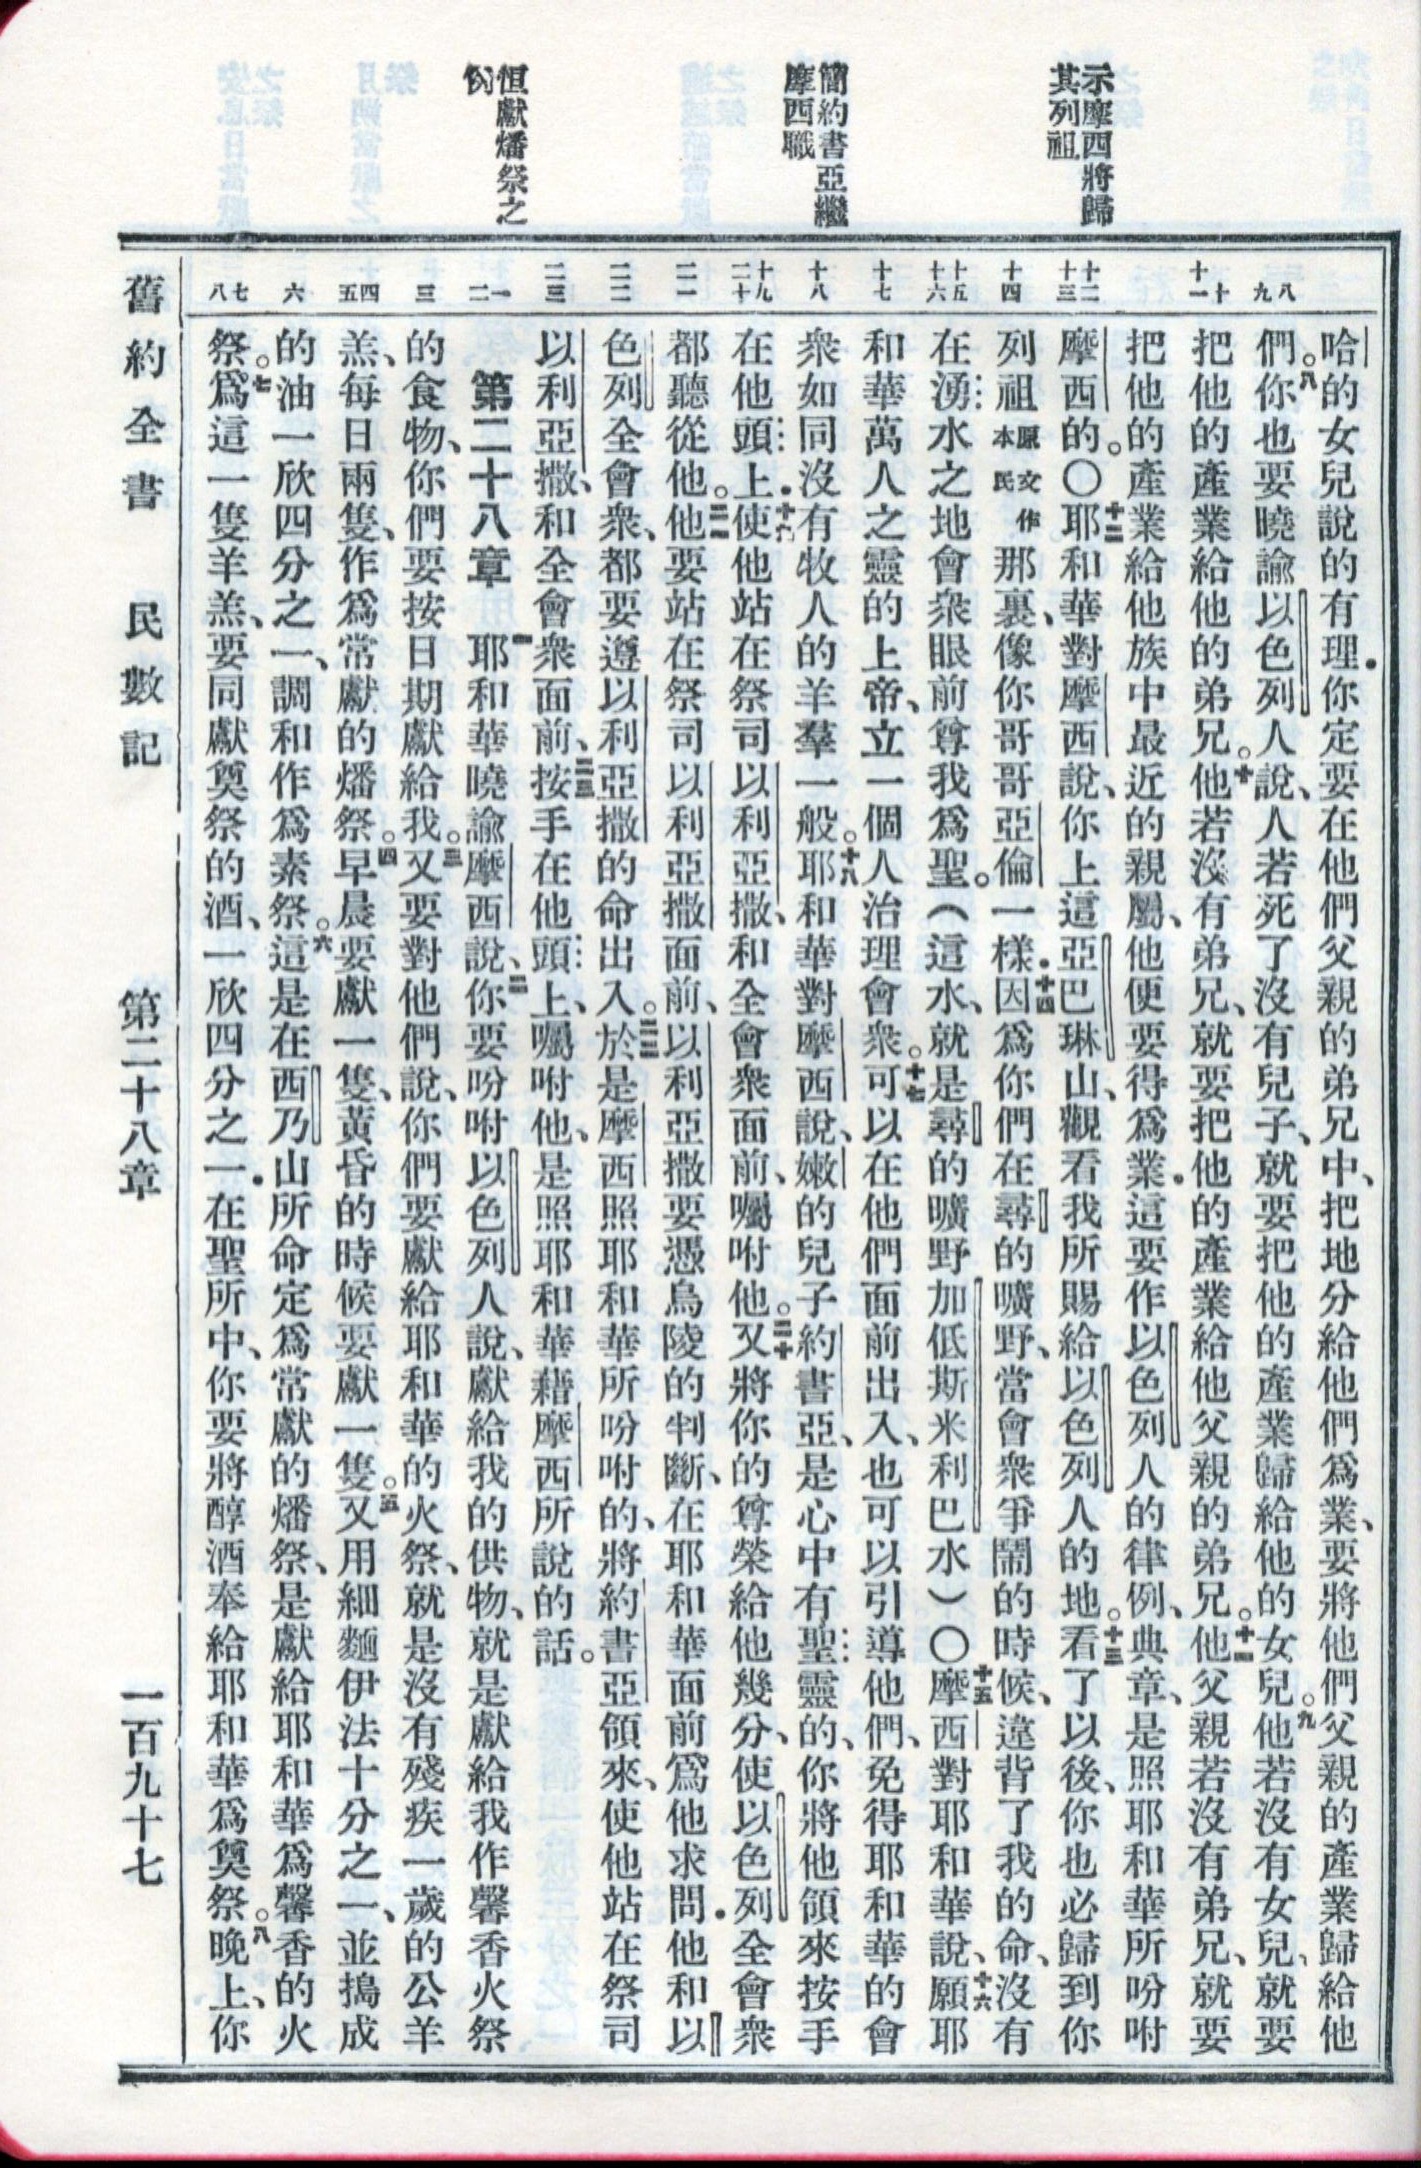 示摩西將歸
其列祖
簡約書亞繼
摩西職
恒獻燔祭之
例
八 九
十 十一
十二 十三
十四
十五 十六
十七
十八
十九 二十
二一
二二
二三
一 二
三
四 五
六
七 八
哈的女兒說的有理．你定要在他們父親的弟兄中、把地分給他們爲業、要將他們父親的產業歸給他
們。八你也要曉諭以色列人說、人若死了沒有兒子、就要把他的產業歸給他的女兒。九他若沒有女兒、就要
把他的產業給他的弟兄。十他若沒有弟兄、就要把他的產業給他父親的弟兄。十一他父親若沒有弟兄、就要
把他的產業給他族中最近的親屬、他便要得爲業．這要作以色列人的律例、典章、是照耶和華所吩咐
摩西的。〇十二耶和華對摩西說、你上這亞巴琳山、觀看我所賜給以色列人的地。十三看了以後、你也必歸到你
列祖原文作本民那裏、像你哥哥亞倫一樣．十四因爲你們在尋的曠野、當會衆爭鬧的時候、違背了我的命、沒有
在湧水之地會衆眼前尊我爲聖。（這水、就是尋的曠野加低斯米利巴水）〇十五摩西對耶和華說、十六願耶
和華萬人之靈的上帝、立一個人治理會衆。十七可以在他們面前出入、也可以引導他們、免得耶和華的會
衆如同沒有牧人的羊羣一般。十八耶和華對摩西說、嫩的兒子約書亞、是心中有聖靈的、你將他領來按手
在他頭上．十九使他站在祭司以利亞撒、和全會衆面前、囑咐他。二十又將你的尊榮給他幾分、使以色列全會衆
都聽從他。二一他要站在祭司以利亞撒面前、以利亞撒要憑烏陵的判斷、在耶和華面前爲他求問．他和以
色列全會衆、都要遵以利亞撒的命出入。二二於是摩西照耶和華所吩咐的、將約書亞領來、使他站在祭司
以利亞撒、和全會衆面前、二三按手在他頭上、囑咐他、是照耶和華藉摩西所說的話。
第二十八章 一耶和華曉諭摩西說、二你要吩咐以色列人說、獻給我的供物、就是獻給我作馨香火祭
的食物、你們要按日期獻給我。三又要對他們說、你們要獻給耶和華的火祭、就是沒有殘疾一歲的公羊
羔、每日兩隻、作爲常獻的燔祭。四早晨要獻一隻、黃昏的時候要獻一隻。五又用細麵伊法十分之一、並搗成
的油一欣四分之一、調和作爲素祭。六這是在西乃山所命定爲常獻的燔祭、是獻給耶和華爲馨香的火
祭。七爲這一隻羊羔、要同獻奠祭的酒、一欣四分之一．在聖所中、你要將醇酒奉給耶和華爲奠祭。八晚上、你
舊約全書 民數記 第二十八章 一百九十七